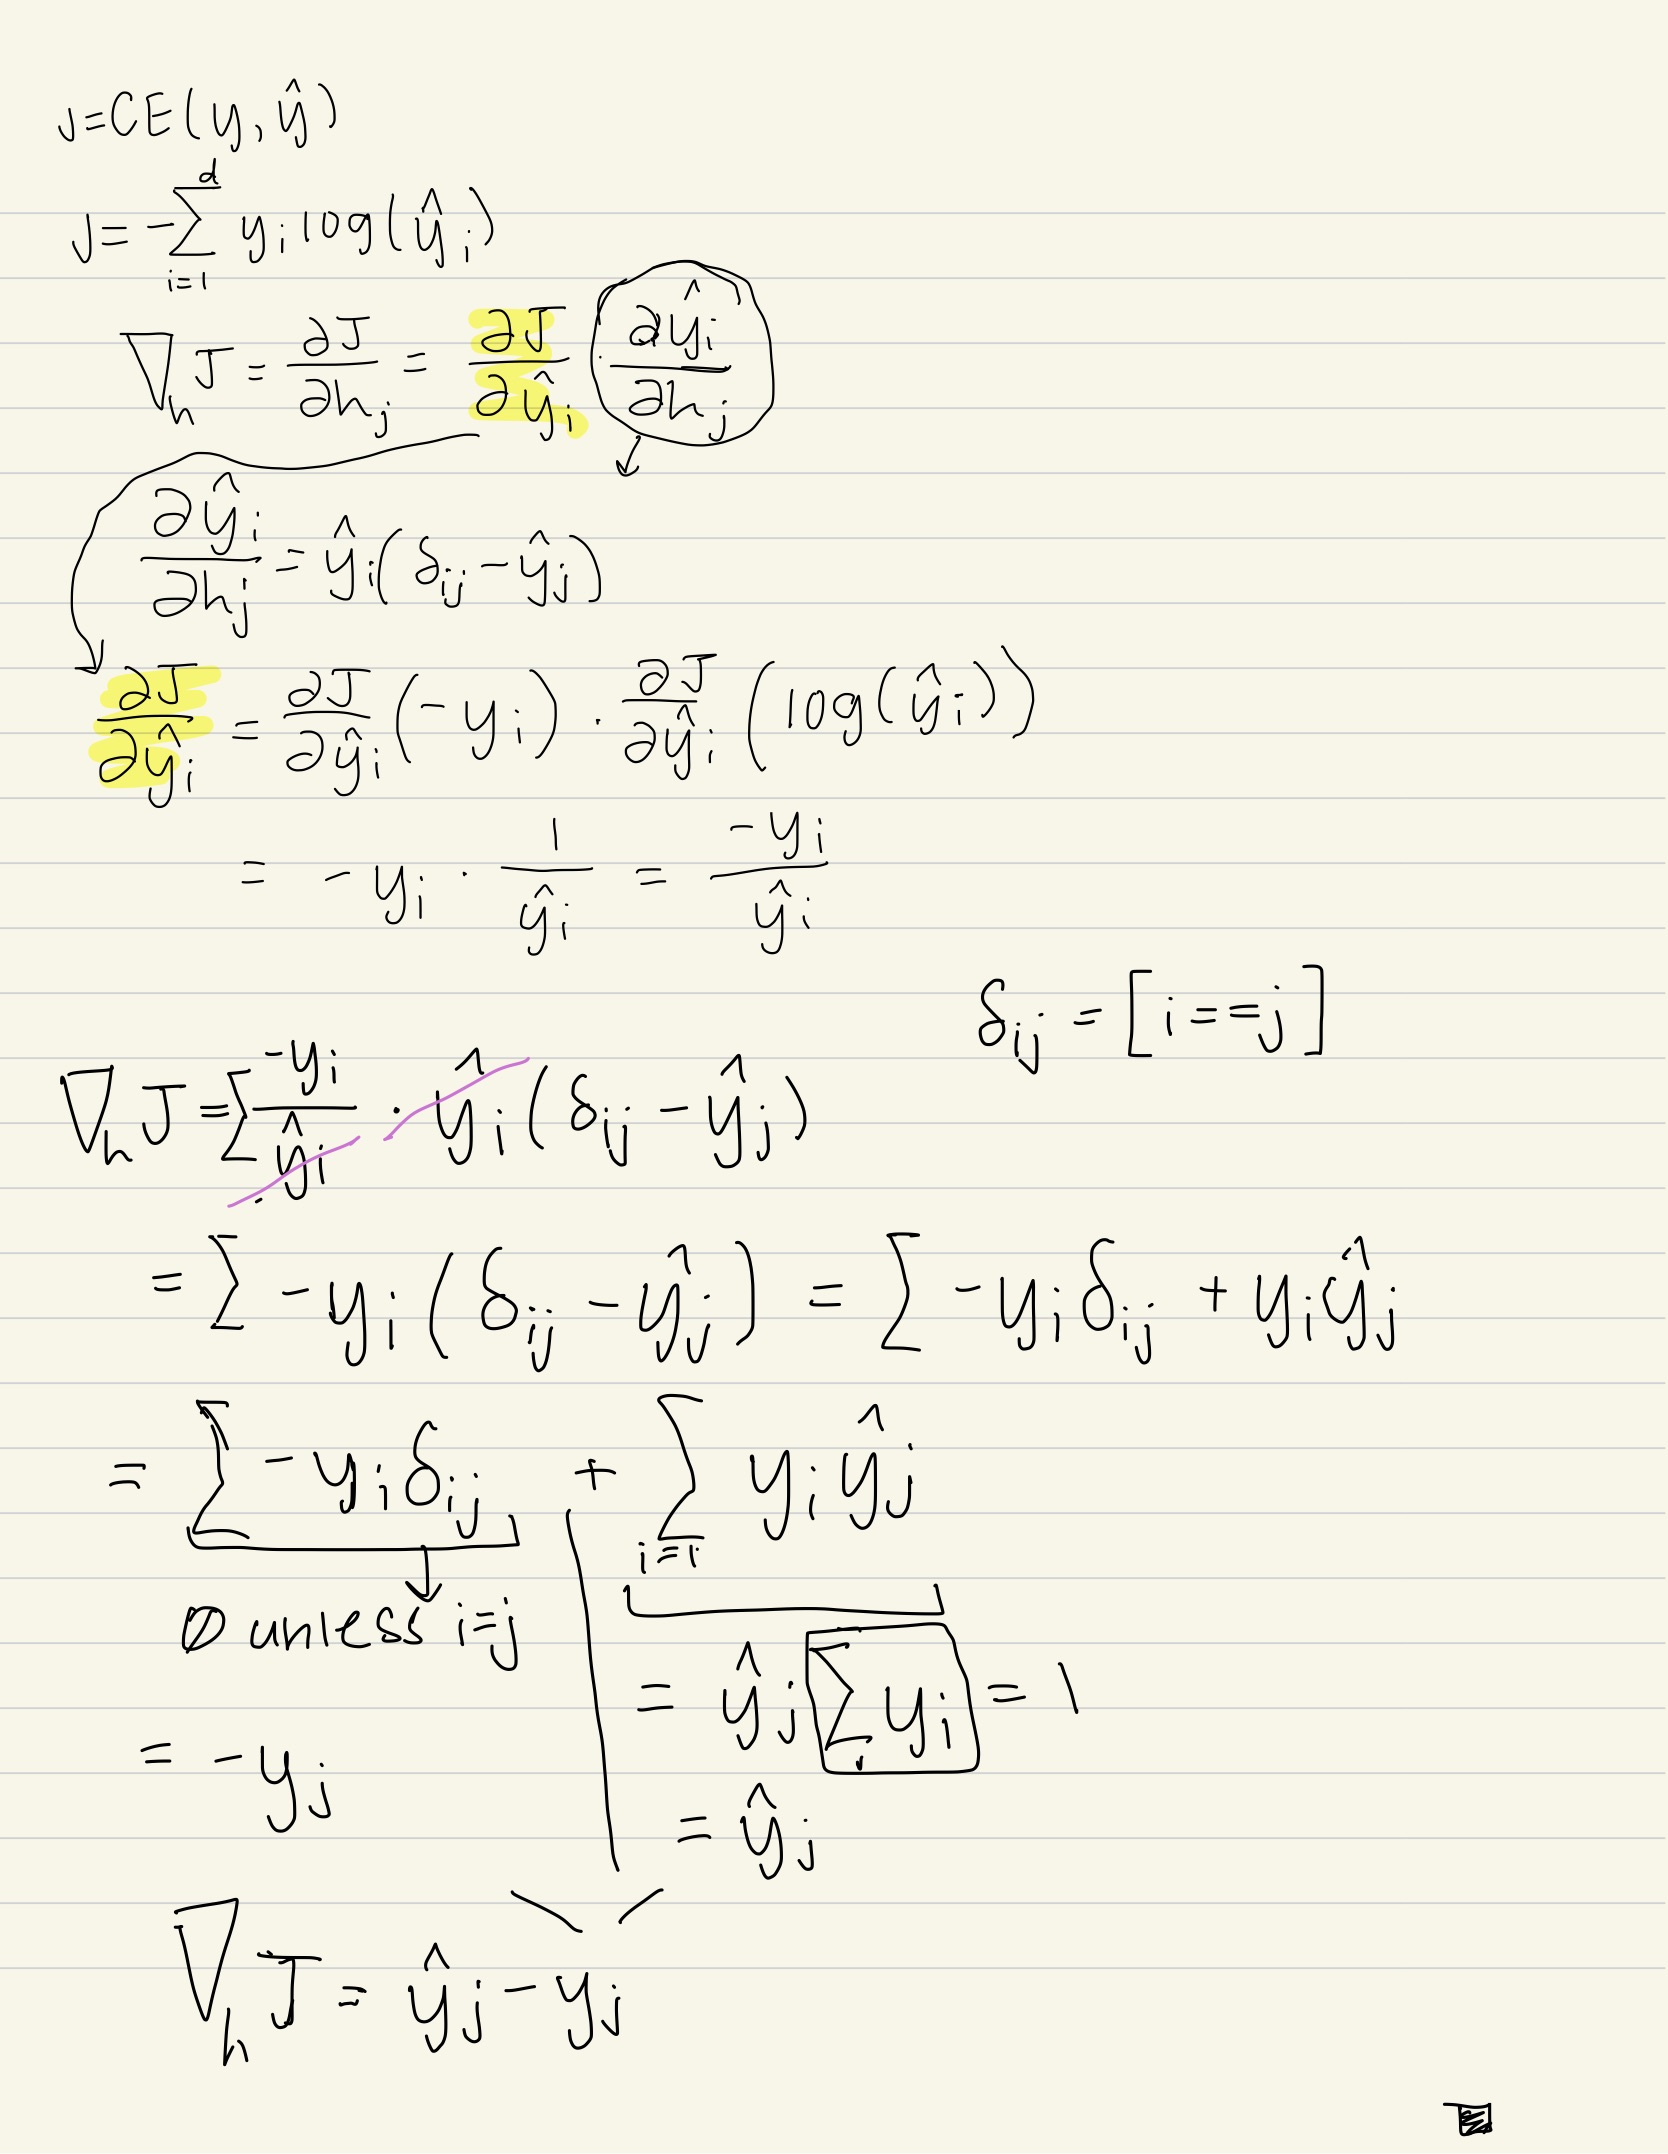 J=CE(y, ŷ)
J= -∑_{i=1}^{d} y_i log(ŷ_i)
∇_h J = ∂J/∂h_j = ∂J/∂ŷ_i · ∂ŷ_i/∂h_j
∂ŷ_i/∂h_j = ŷ_i(δ_ij - ŷ_j)
∂J/∂ŷ_i = ∂J/∂ŷ_i (-y_i) · ∂J/∂ŷ_i (log(ŷ_i))
= -y_i · 1/ŷ_i = -y_i/ŷ_i
δ_ij = [i==j]
∇_h J = ∑ -y_i/ŷ_i · ŷ_i (δ_ij - ŷ_j)
= ∑ -y_i (δ_ij - ŷ_j) = ∑ -y_i δ_ij + y_i ŷ_j
= ∑ -y_i δ_ij + ∑_{i=1} y_i ŷ_j
0 unless i=j
= ŷ_j ∑ y_i = 1
= -y_j
= ŷ_j
∇_h J = ŷ_j - y_j